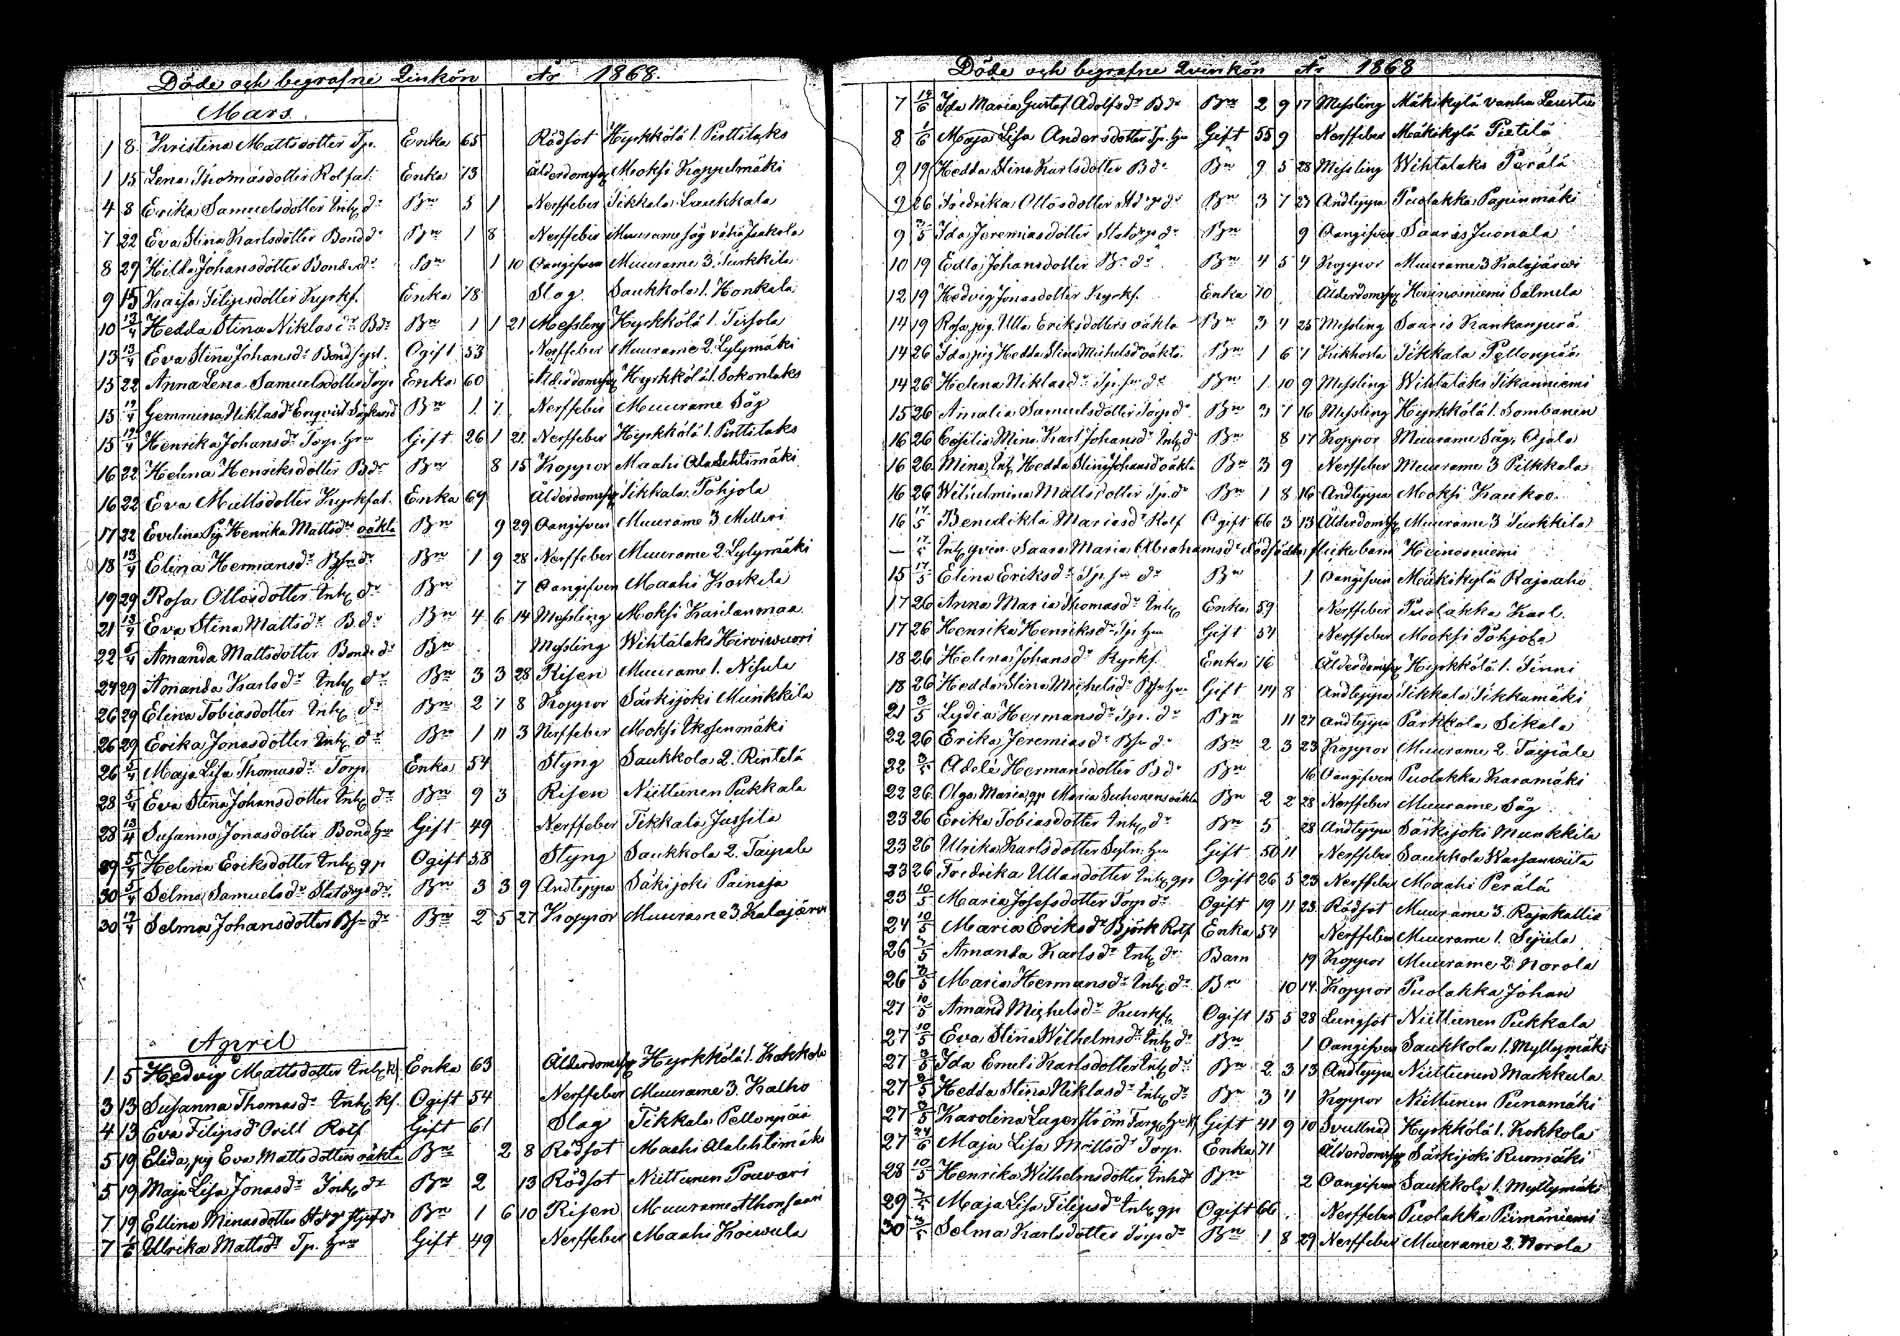 Döde och begrafne Qvinkön År 1868.
Mars
1 8 Kristina Mattsdotter Tp. Enka 65 Rödsot Hyrkkölä 1. Perttilaks
1 15 Lena Thomasdotter Rolfat. Enka 73 Ålderdomssv Moksi Koppelmäki
4 8 Erika Samuelsdotter Inh dr Bn 5 1 Nerffeber Tikkala Laukkala
7 22 Eva Stina Karlsdotter Bonded Bn 1 8 Nerffeber Muurame såg vähä Jaakola
8 29 Hilda Johansdotter Bonded Bn 1 10 Oangifven Muurame 3. Turkkila
9 15 Kaisa Filipsdotter Kyrkf. Enka 78 Slag Saukkola 1. Honkala
10 13/4 Hedda Stina Niklasdr Bdr Bn 1 1 21 Messling Hyrkkölä 1. Tersola
13 13/4 Eva Stina Johansdr Bond syst. Ogift 53 Nerffeber Muurame 2. Lylymäki
15 22 Anna Lena Samuelsdotter Torp Enka 60 Ålderdomssv Hyrkkölä 1. Sokonlaks
15 12/4 Gemmina Niklasdr Enqvist Bn 1 7 Nerffeber Muurame Såg
15 12/4 Henrika Johansdr Torp. hru Gift 26 1 21 Nerffeber Hyrkkölä 1. Perttilaks
16 22 Helena Henriksdotter Bdr Bn 8 15 Koppor Maahi Alalehtimäki
16 22 Eva Mattsdotter Kyrkfat. Enka 69 Ålderdomssv Tikkala Pohjola
17 22 Evelina Pig Henrika Mattsdrs oäkta Bn 9 29 Oangifven Muurame 3. Melleri
18 13/4 Elina Hermansdr Bsn dr Bn 1 9 28 Nerffeber Muurame 2 Lylymäki
19 29 Rosa Ottosdotter Inh dr Bn 7 Oangifven Maahi Koskela
21 13/4 Eva Stina Mattsdr B. dr Bn 4 6 14 Messling Moksi Karilanmaa
22 5/4 Amanda Mattsdotter Bonde dr Bn Messling Wihtalaks Hirviwuori
24 29 Amanda Karlsdr Inh dr Bn 3 3 28 Risen Muurame 1. Nisula
26 29 Elina Tobiasdotter Inh dr Bn 2 7 8 Koppor Särkijoki Munkkila
26 29 Erika Jonasdotter Inh dr Bn 1 11 3 Nerffeber Moksi Ikosenmäki
26 5/4 Maja Lisa Thomasdr Torp Enka 54 Styng Saukkola 2. Rintelä
28 5/4 Eva Stina Johansdotter Inh dr Bn 9 3 Risen Niittunen Pukkala
28 13/4 Susanna Jonasdotter Bond hru Gift 49 Nerffeber Tikkala Jussila
29 5/4 Helena Eriksdotter Inh qp Ogift 58 Styng Saukkola 2. Taipale
30 5/4 Selma Samuelsdr Statorpdr Bn 3 3 9 Andtäppa Säkijoki Painaja
30 12/4 Selma Johansdotter Bsn dr Bn 2 5 27 Koppor Muurame 3. Kalajärvi
April
1 5 Hedvig Mattsdotter Inh k Enka 63 Ålderdomssv Hyrkkölä 1. Kokkola
3 13 Susanna Thomasdr Inh kf. Ogift 54 Nerffeber Muurame 3. Kalho
4 13 Eva Filipsdr Ovill Rotf Gift 61 Slag Tikkala Pellonpää
5 19 Elida, pig Eva Mattsdotters oäkta Bn 2 8 Rödsot Maahi Alalehtimäki
5 19 Maja Lisa Jonasdr Inh dr Bn 2 13 Rödsot Niittunen Poavari
7 19 Ellina Minasdotter Bn 1 6 10 Risen Muurame
7 1/6 Ulrika Mattsdr Tp. hru Gift 49 Nerffeber Maahi Koiwula
Döde och begrafne Qvinkön År 1868
7 14/6 Ida Maria Gustaf Adolfsdr Bdr Bn 2 9 17 Messling Mäkikylä vanha
8 1/6 Maja Lisa Andersdotter Tp. hu Gift 55 9 Nerffeber Mäkikylä Pietilä
9 19 Hedda Stina Karlsdotter Bdr Bn 9 5 28 Messling Wihtalaks Perälä
9 26 Fredrika Ottosdotter Bn 3 7 23 Andteppa Puolakka Papinmäki
9 3/5 Ida Jeremiasdotter Statorp dr Bn 9 Oangifven Saaris Juonala
10 19 Edla Johansdotter B. dr Bn 4 5 4 Koppor Muurame 3 Kalajärvi
12 19 Hedvig Jonasdotter Kyrkf. Enka 70 Ålderdomssv Heinosniemi Salmela
14 19 Rosa, pig. Ulla Eriksdotters oäkta Bn 3 4 25 Messling Saaris Kankanperä
14 26 Ida, pig Hedda Stina Michelsdrs oäkta Bn 1 6 7 Kikhosta Tikkala Pellonpää
14 26 Helena Niklasdr Tp. dr Bn 1 10 9 Messling Wihtalaks Tikanniemi
15 26 Amalia Samuelsdotter Torpdr Bn 3 7 16 Messling Hyrkkölä 1. Sombanen
16 26 Cecilia Mina Karl Johansdr Inh d Bn 8 17 Koppor Muurame Såg, Ojala
16 26 Mina, Inh Hedda Stina Johansd oäkta Bn 3 9 Nerffeber Muurame 3 Pilkkala
16 26 Wilhelmina Mattsdotter Tp. dr Bn 1 8 16 Andteppa Moksi Kaukoo
16 17/5 Benedikta Mariasdr Rotf Ogift 66 3 13 Ålderdomssv Muurame 3 Turkkila
— 17/5 Inh qvin. Saara Maria Abrahamsdr dödfödda flickebarn Heinosniemi
15 17/5 Elina Eriksdr Tp. dr Bn 1 Oangifven Mäkikylä Rajaaho
17 26 Anna Maria Thomasdr Inh Enka 59 Nerffeber Puolakka Karl.
17 26 Henrika Henriksdr Tp hru Gift 54 Nerffeber Mooksi Pohjola
18 26 Helena Johansdr Kyrkf. Enka 76 Ålderdomssv Hyrkkölä 1. Tinni
18 26 Hedda Stina Michelsdr Bsn hru Gift 44 8 Andteppa Tikkala Tikkamäki
21 3/5 Lydia Hermansdr Tp. dr Bn 11 27 Andteppa Parkkola Sikala
22 26 Erika Jeremiasdr Bsn dr Bn 2 3 23 Koppor Muurame 2. Taipale
22 3/5 Adele Hermansdotter Bdr Bn 16 Oangifven Puolakka Karamäki
22 26 Olga Maria, qp Maria Suhonens oäkta Bn 2 2 28 Nerffeber Muurame Såg
23 26 Erika Tobiasdotter Inh dr Bn 5 28 Andteppa Särkijoki Munkkila
23 26 Ulrika Karlsdotter Sytn. hu Gift 50 11 Nerffeber Saukkola
23 26 Fredrika Ullasdotter Inh qp Ogift 26 5 23 Nerffeber Maahi Perälä
23 10/5 Maria Josefsdotter Torp dr Ogift 19 11 23 Rödsot Muurame 3. Rajakallio
24 10/5 Maria Eriksdr Björk Rotf Enka 54 Nerffeber Muurame 1. Sejula
26 3/5 Amanda Karlsdr Inh dr Barn 19 Koppor Muurame 2. Norola
26 3/5 Maria Hermansdr Inh. dr Bn 10 14 Koppor Puolakka Johan
27 10/5 Amand Michelsdr Ogift 15 5 28 Lungsot Niittunen Pukkala
27 10/5 Eva Stina Wilhelmsdr Inh dr Bn 1 Oangifven Saukkola 1. Myllymäki
27 3/5 Ida Emeli Karlsdotter Inh dr Bn 2 3 13 Andteppa Niittunen Markkula
27 3/5 Hedda Stina Niklasdr Inh dr Bn 3 4 Koppor Niittunen Penamäki
27 3/5 Karolina Lagerström Gift 41 9 10 Svullnad Hyrkkölä 1. Kokkola
27 24/6 Maja Lisa Mattsdr Torp. Enka 71 Ålderdomssv Särkijoki Ruomäki
28 10/5 Henrika Wilhelmsdotter, Inhd Bn 2 Oangifven Saukkola 1. Myllymäki
29 3/5 Maja Lisa Filipsdr Inh qp Ogift 66 Nerffeber Puolakka Piimäniemi
30 3/5 Selma Karlsdotter Torp dr Bn 1 8 29 Nerffeber Muurame 2. Norola